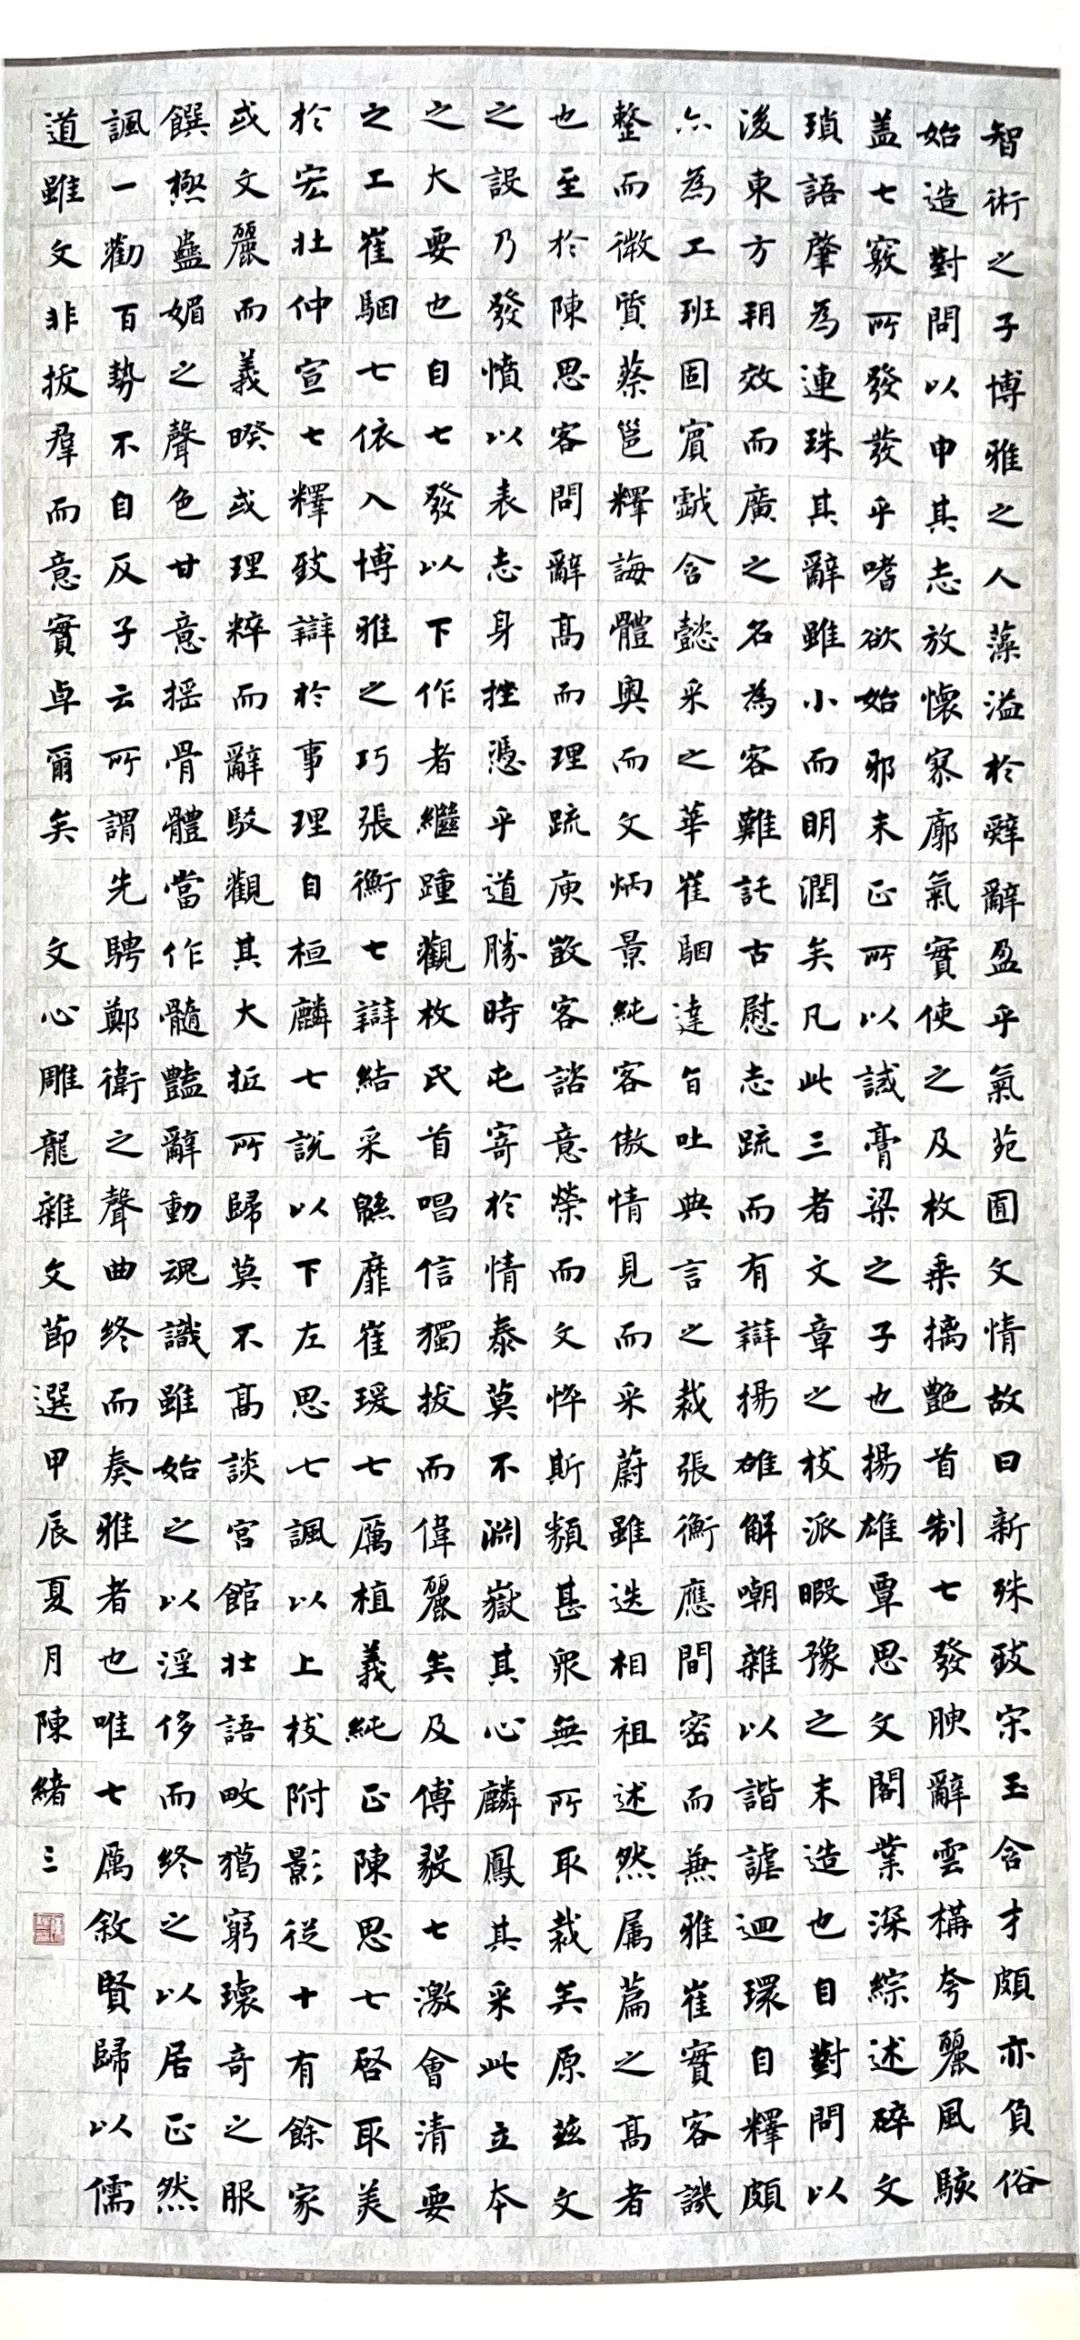 智術之子博雅之人藻溢於辭辭盈乎氣苑囿文情故日新殊致宋玉含才頗亦負俗
始造對問以申其志放懷寥廓氣實使之及枚乘摛艷首制七發腴辭雲構夸麗風駭
盖七竅所發發乎嗜欲始邪末正所以誡膏粱之子也揚雄覃思文閣業深綜述碎文
瑣語肇為連珠其辭雖小而明潤矣凡此三者文章之枝派暇豫之末造也自對問以
後東方朔效而廣之名為客難託古慰志疏而有辯揚雄解嘲雜以諧謔迴環自釋頗
亦為工班固賓戲含懿采之華崔駰達旨吐典言之裁張衡應間密而兼雅崔實客譏
整而微質蔡邕釋誨體奧而文炳景純客傲情見而采蔚雖迭相祖述然属篇之高者
也至於陳思客問辭高而理疏庾敳客諮意榮而文悴斯類甚眾無所取裁矣原茲文
之設乃發憤以表志身挫憑乎道勝時屯寄於情泰莫不淵嶽其心麟鳳其采此立本
之大要也自七發以下作者繼踵觀枚氏首唱信獨拔而偉麗矣及傅毅七激會清要
之工崔駰七依入博雅之巧張衡七辯結采緜靡崔瑗七厲植義純正陳思七啓取美
於宏壯仲宣七釋致辯於事理自桓麟七說以下左思七諷以上枝附影從十有餘家
或文麗而義暌或理粹而辭駁觀其大抵所歸莫不高談宮館壯語畋獵窮瓌奇之服
饌極蠱媚之聲色甘意搖骨體當作髓豔辭動魂識雖始之以淫侈而終之以居正然
諷一勸百勢不自反子云所謂先騁鄭衛之聲曲終而奏雅者也唯七厲敘賢歸以儒
道雖文非拔羣而意實卓爾矣 文心雕龍雜文節選甲辰夏月陳緒三